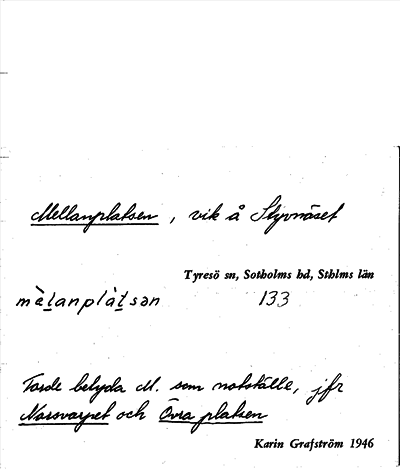 Mellanplatsen, vik å Styvnäset
Tyresö sn, Sotholms hd, Sthlms län
mèl̠anplàt̠sən 133
Torde betyda M. som notställe, jfr
Norsvarpet och Övra platsen
Karin Grafström 1946